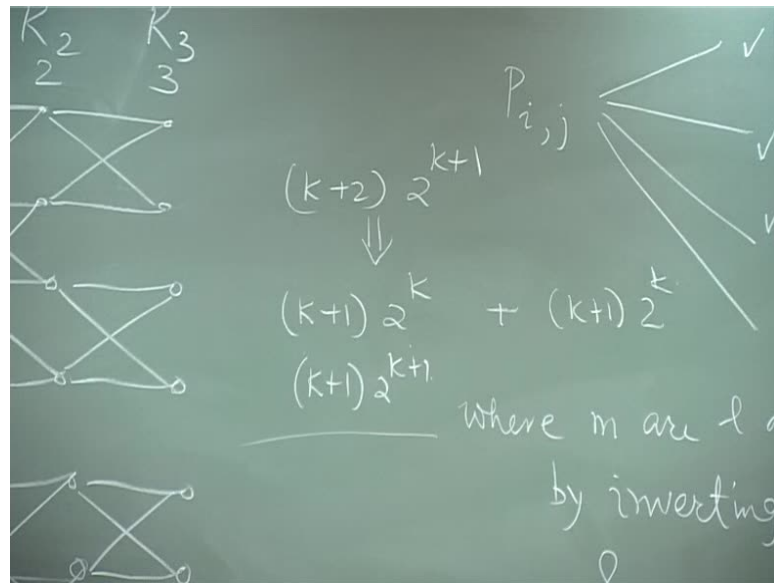 K₂ K₃
2 3
P_{i,j}
(k+2) 2^{k+1}
⇓
(k+1) 2^k + (k+1) 2^k
(k+1) 2^{k+1}
where m are l
by inverting